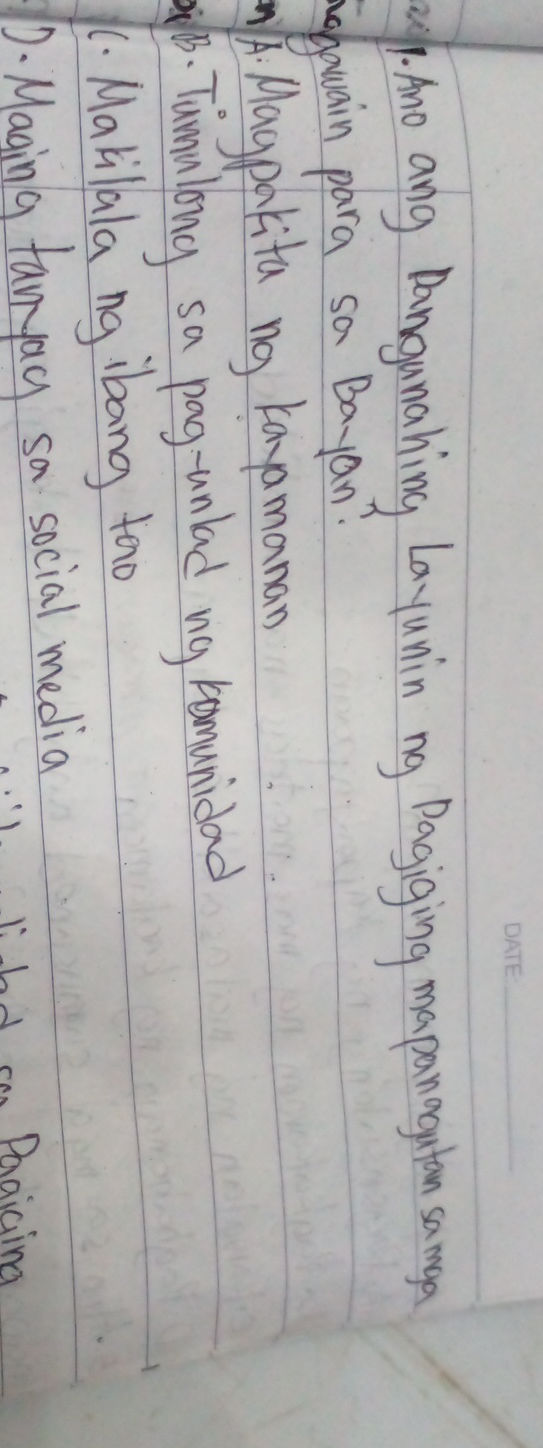 DATE:
1. Ano ang Pangunahing Layunin ng Pagiging mapanagutan sa mga
gawain para sa Bayan?
A. Magpakita ng kayamanan
B. Tumulong sa pag-unlad ng komunidad
C. Makilala ng ibang tao
D. Maging tanyag sa social media
sa Pagiging